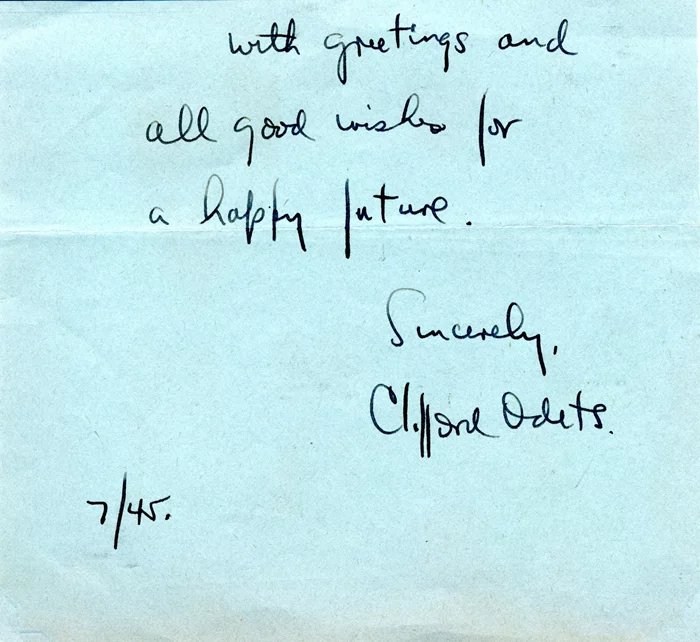 with greetings and
all good wishes for
a happy future.
Sincerely,
Clifford Odets.
7/45.